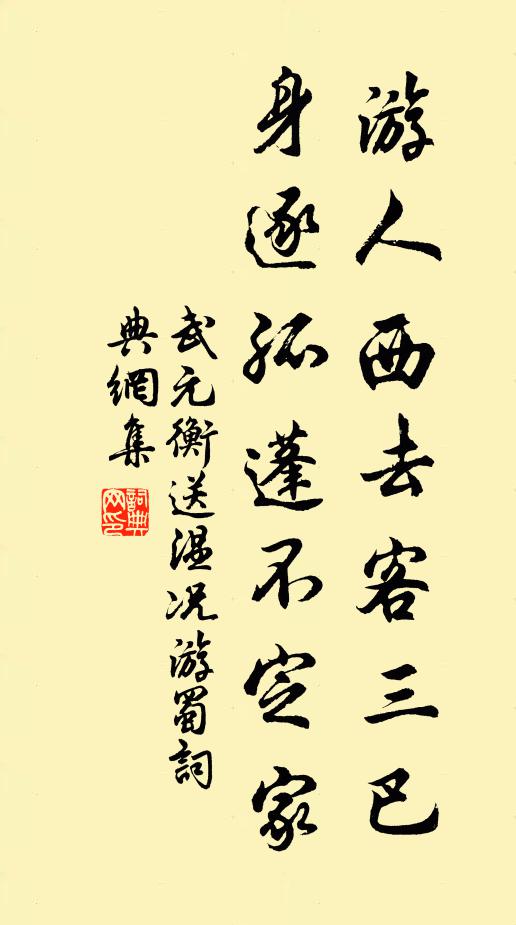 游人西去客三巴
身逐孤蓬不定家
武元衡送温况游蜀詞
典網集
詞典
网印